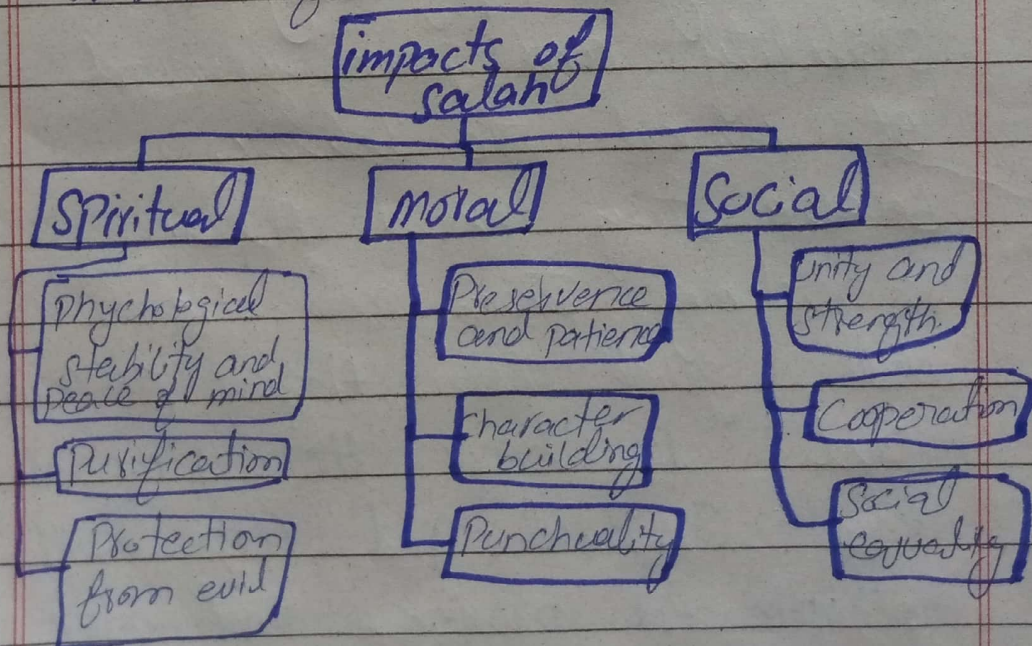 impacts of
salah
Spiritual
Moral
Social
Phychological
stability and
peace of mind
Purification
Protection
from evil
Preservence
and patience
Character
building
Punctuality
Unity and
strength.
Cooperation
Social
equality